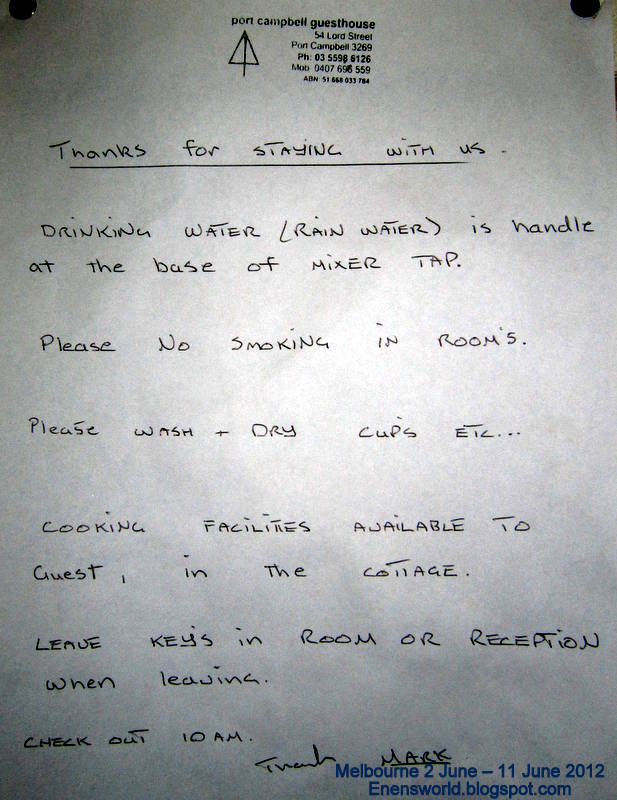 port campbell guesthouse
54 Lord Street
Port Campbell 3269
Ph: 03 5598 6126
Mob 0407 696 559
ABN: 51 668 033 784
Thanks for STAYING WITH us.
DRINKING WATER (RAIN WATER) is handle
at the base of MIXER TAP.
Please NO SMOKING IN ROOM'S.
Please WASH + DRY CUP'S ETC...
COOKING FACILITIES AVAILABLE TO
Guest, in THE COTTAGE.
LEAVE KEY'S in ROOM OR RECEPTION
when leaving.
CHECK OUT 10 AM.
Thank MARK
Melbourne 2 June – 11 June 2012
Enensworld.blogspot.com